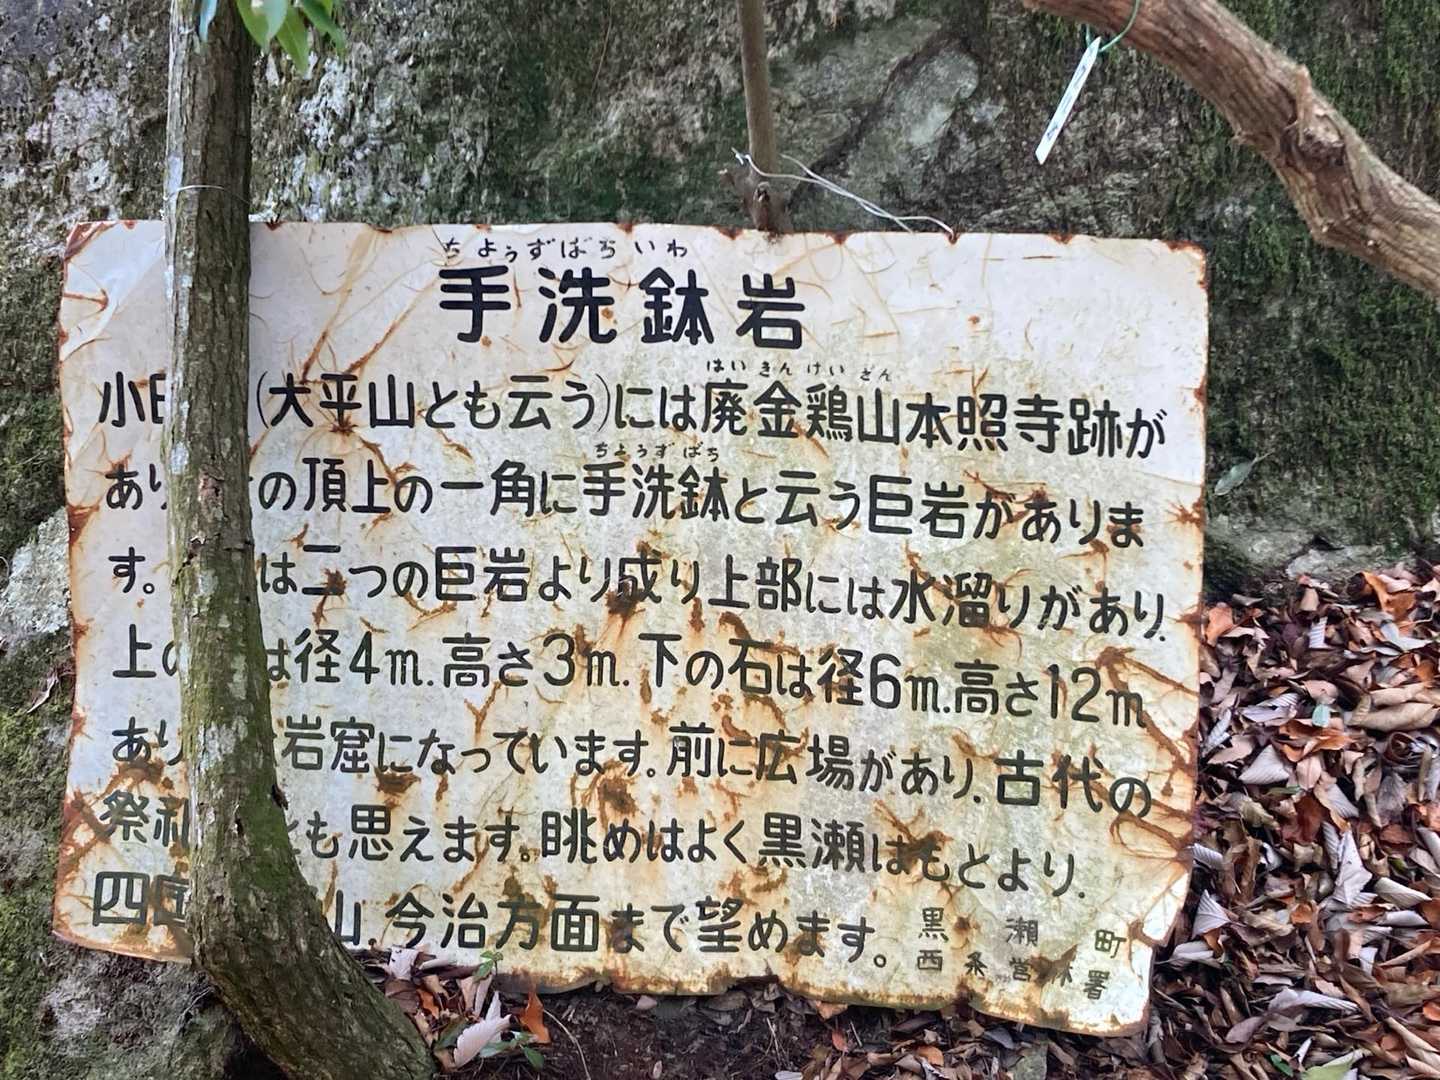 ちょうずばちいわ
手洗鉢岩
小田 (大平山とも云う)には廃金鶏山本照寺跡が
はいきんけいざん
あり の頂上の一角に手洗鉢と云う巨岩がありま
ちょうずばち
す。 は二つの巨岩より成り上部には水溜りがあり.
上の は径4m.高さ3m.下の石は径6m.高さ12m
あり 岩窟になっています。前に広場があり.古代の
祭祀 とも思えます。眺めはよく黒瀬はもとより.
四国 山.今治方面まで望めます。
黒瀬町
西条営林署